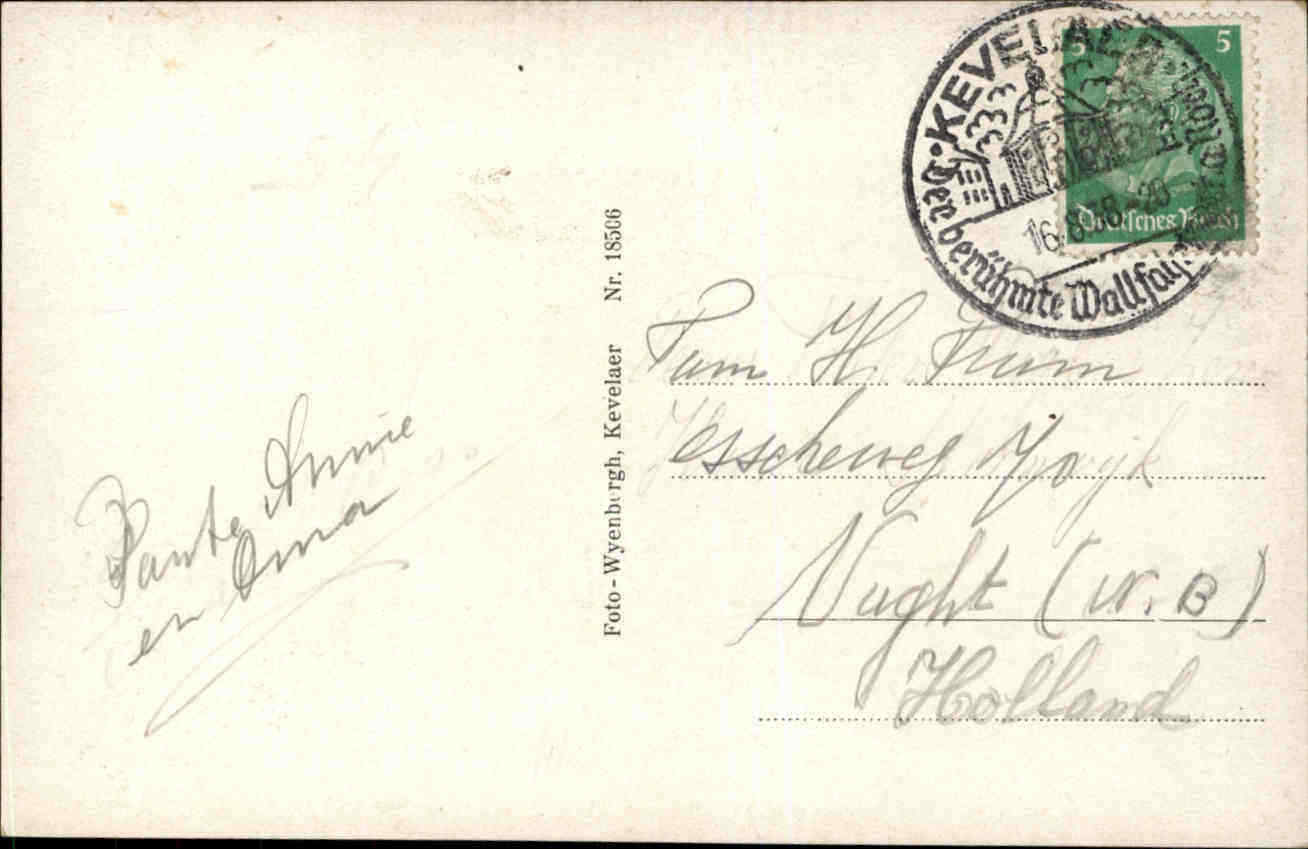 KEVELAER
Der berühmte Wallfahrtsort
16.8.38-20
5 5
Deutsches Reich
Foto-Wyenbergh, Kevelaer Nr. 18506
Tante Annie
en Oma
Fam H.
Esscheweg
Vught (N.B)
Holland